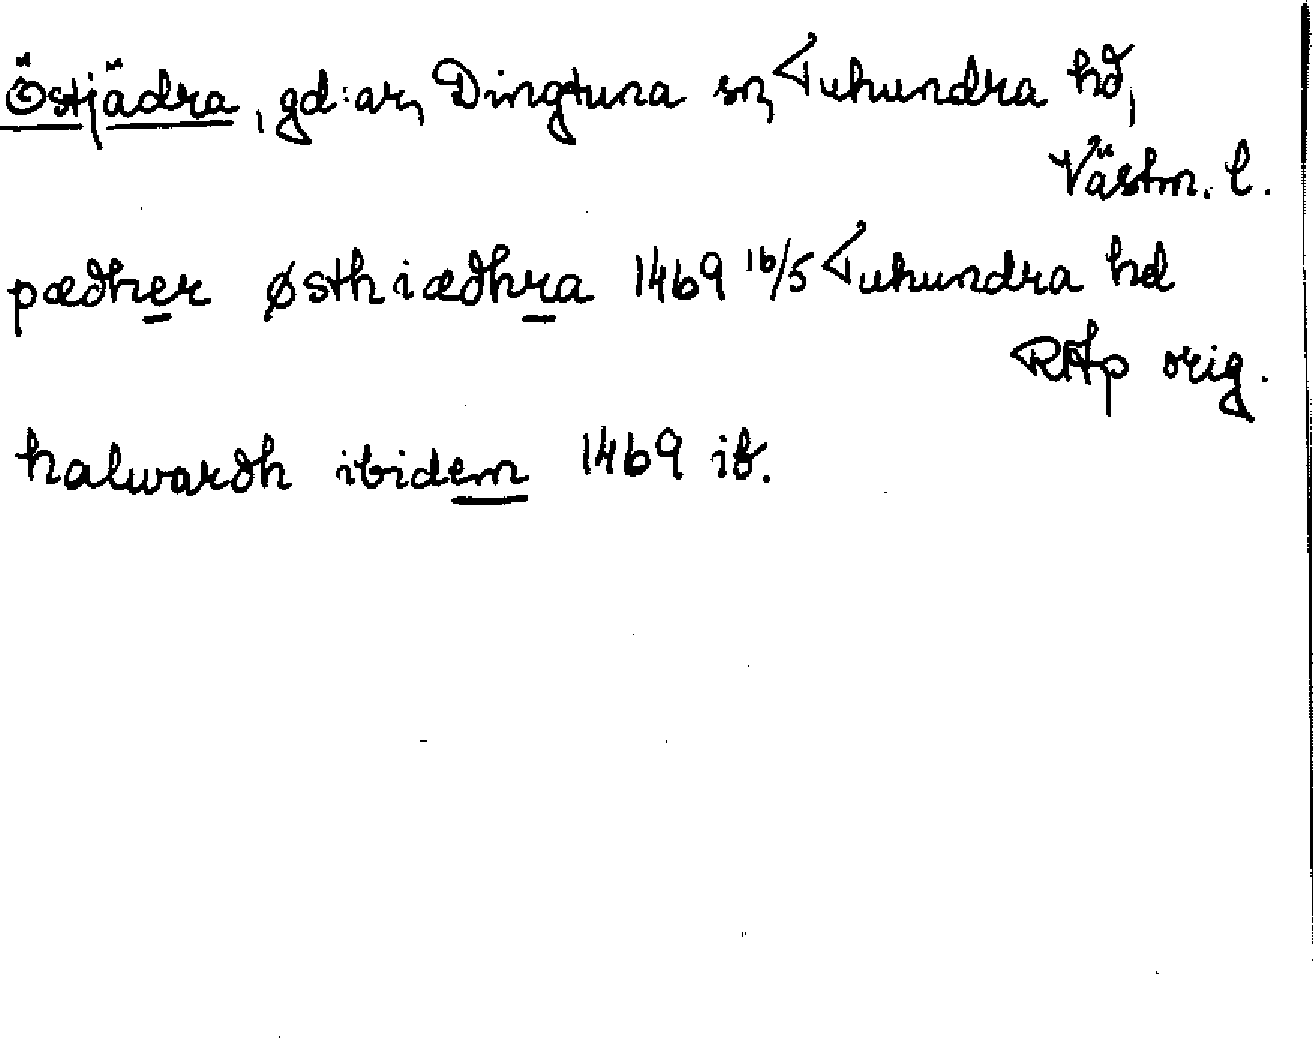 Östjädra, gd:ar, Dingtuna sn, Tuhundra hd,
Västm. l.
pædher østhiædhra 1469 16/5 Tuhundra hd
RAp orig.
halwardh ibidem 1469 ib.